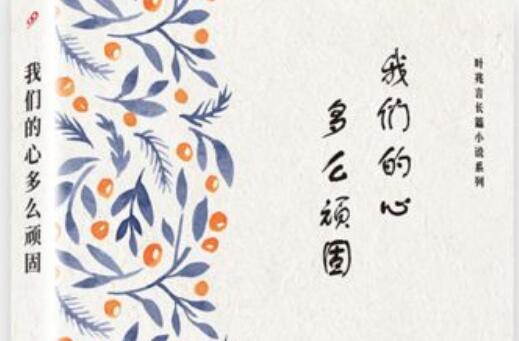 我们的心多么顽固
我们的心
多么顽固
叶兆言长篇小说系列